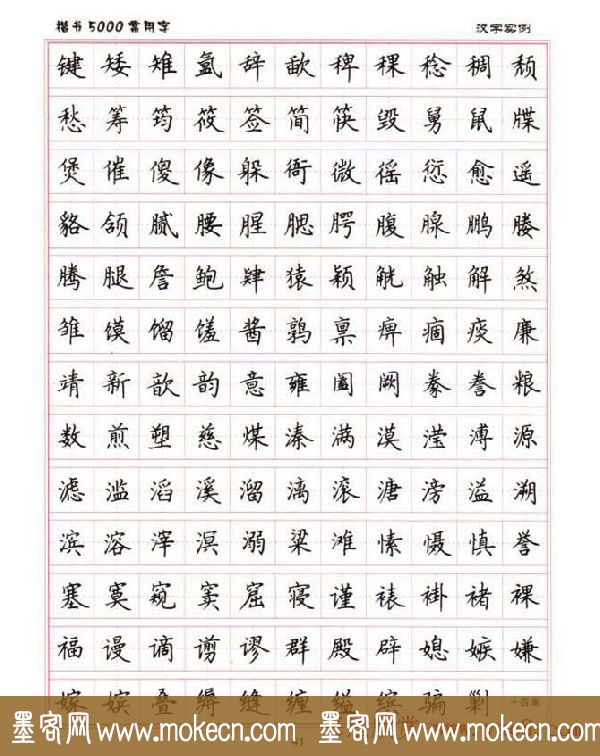 楷书5000常用字 汉字实例
键 矮 雉 氲 辞 歃 稗 稞 稔 稠 颓
愁 筹 筠 筱 签 简 筷 毁 舅 鼠 牒
煲 催 傻 像 躲 衙 微 徭 愆 愈 遥
貉 颌 腻 腰 腥 腮 腭 腹 腺 鹏 媵
腾 腿 詹 鲍 肄 猿 颖 觥 触 解 煞
雏 馍 馏 馐 酱 鹑 禀 痹 痼 痰 廉
靖 新 歆 韵 意 雍 阖 阙 豢 誊 粮
数 煎 塑 慈 煤 溱 满 漠 滢 溥 源
滤 滥 滔 溪 溜 漓 滚 溏 滂 溢 溯
滨 溶 滓 溟 溺 粱 滩 愫 慑 慎 誉
塞 寞 窥 窦 窟 寝 谨 裱 褂 褚 裸
福 谩 谪 谫 谬 群 殿 辟 媳 嫉 嫌
嫁 嫔 叠 缛 缝 缠 缢 缤 骗 剿 十四画
墨客网 www.mokecn.com 墨客网 www.mokecn.com